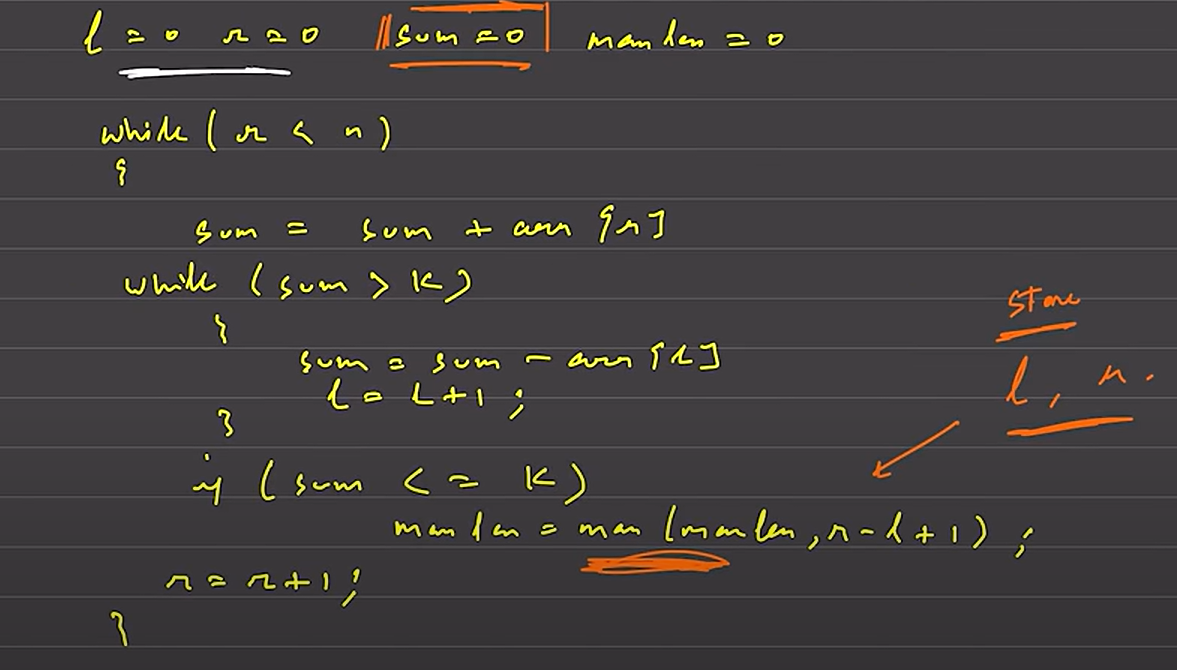 l = 0 r = 0 sum = 0 maxlen = 0
while ( r < n )
{
sum = sum + arr [r]
while ( sum > K )
{
sum = sum - arr [l]
l = l + 1 ;
}
if ( sum <= K )
maxlen = max (maxlen, r - l + 1) ;
r = r + 1 ;
}
store
l, r.